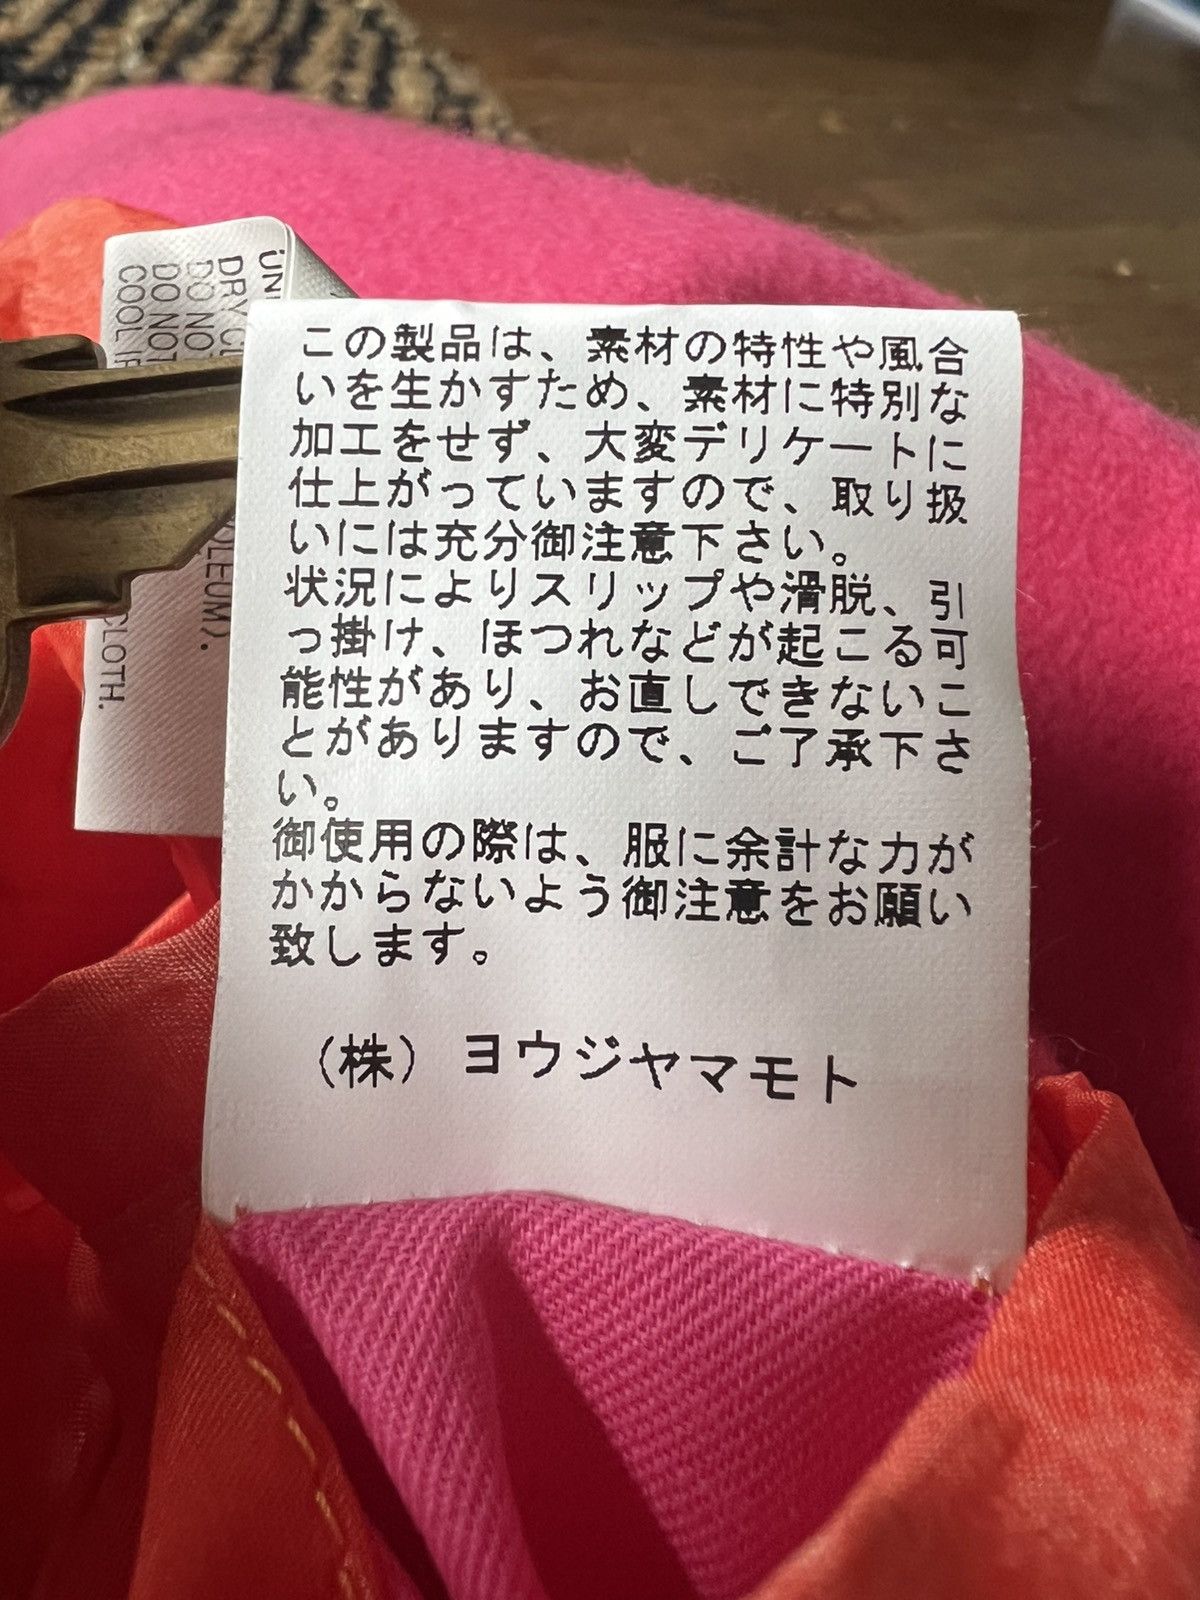 この製品は、素材の特性や風合
いを生かすため、素材に特別な
加工をせず、大変デリケートに
仕上がっていますので、取り扱
いには充分御注意下さい。
状況によりスリップや滑脱、引
っ掛け、ほつれなどが起こる可
能性があり、お直しできないこ
とがありますので、ご了承下さ
い。
御使用の際は、服に余計な力が
かからないよう御注意をお願い
致します。
(株) ヨウジヤマモト
DRY
DO NOT
DO NOT
COOL
OLEUM).
CLOTH.